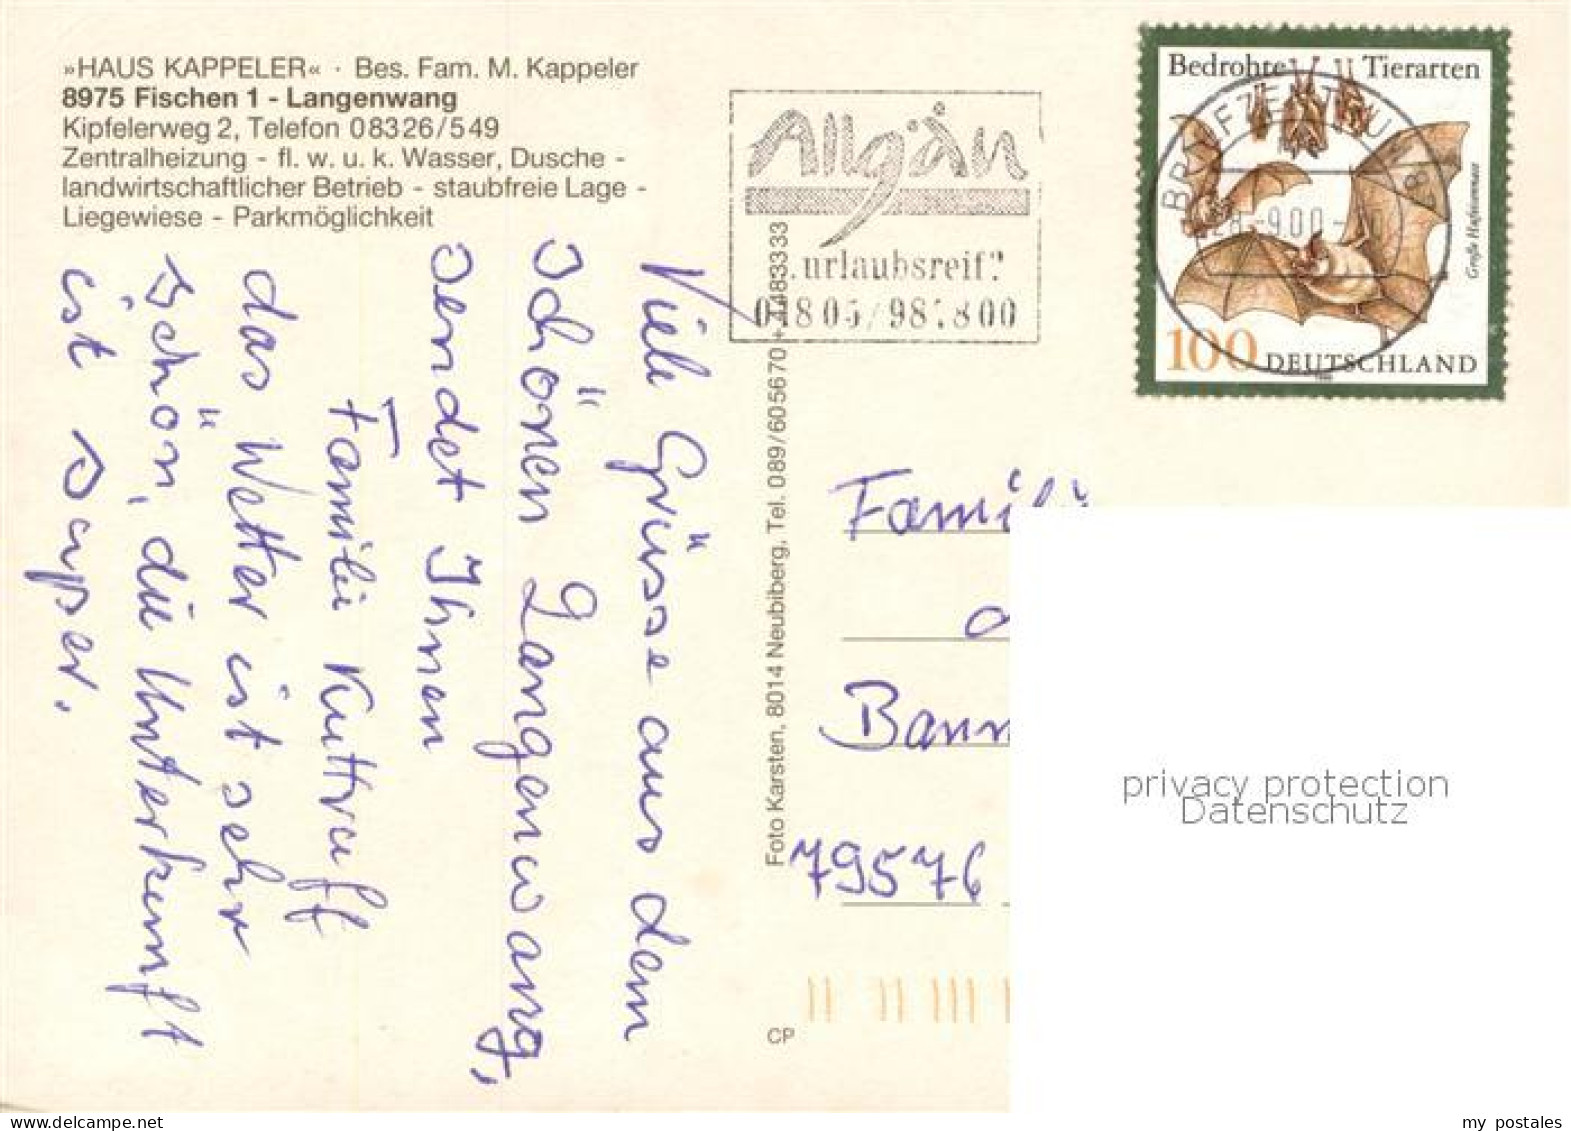 »HAUS KAPPELER« · Bes. Fam. M. Kappeler
8975 Fischen 1 - Langenwang
Kipfelerweg 2, Telefon 08326/549
Zentralheizung - fl. w. u. k. Wasser, Dusche -
landwirtschaftlicher Betrieb - staubfreie Lage -
Liegewiese - Parkmöglichkeit
Viele Grüsse aus dem
schönen Langenwang,
sendet Ihnen
Familie Kuttruff
das Wetter ist sehr
schön, die Unterkunft
ist super.
Foto Karsten, 8014 Neubiberg, Tel. 089/605670 +
CP
Allgäu
urlaubsreif?
Bedrohte Tierarten
Große Hufeisennase
100 DEUTSCHLAND
BRIEFZENTRUM
Familie
79576
privacy protection
Datenschutz
my postales